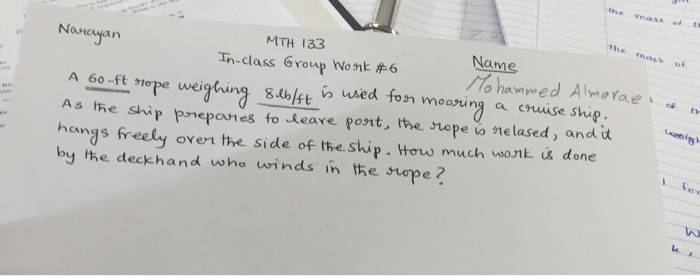 the mass of
Narayan
MTH 133
the mass of
In-class Group Work #6
Name
Mohammed Almorae
A 60-ft rope weighing 8 lb/ft is used for mooring a cruise ship.
As the ship prepares to leave port, the rope is relased, and it
hangs freely over the side of the ship. How much work is done
by the deckhand who winds in the rope?